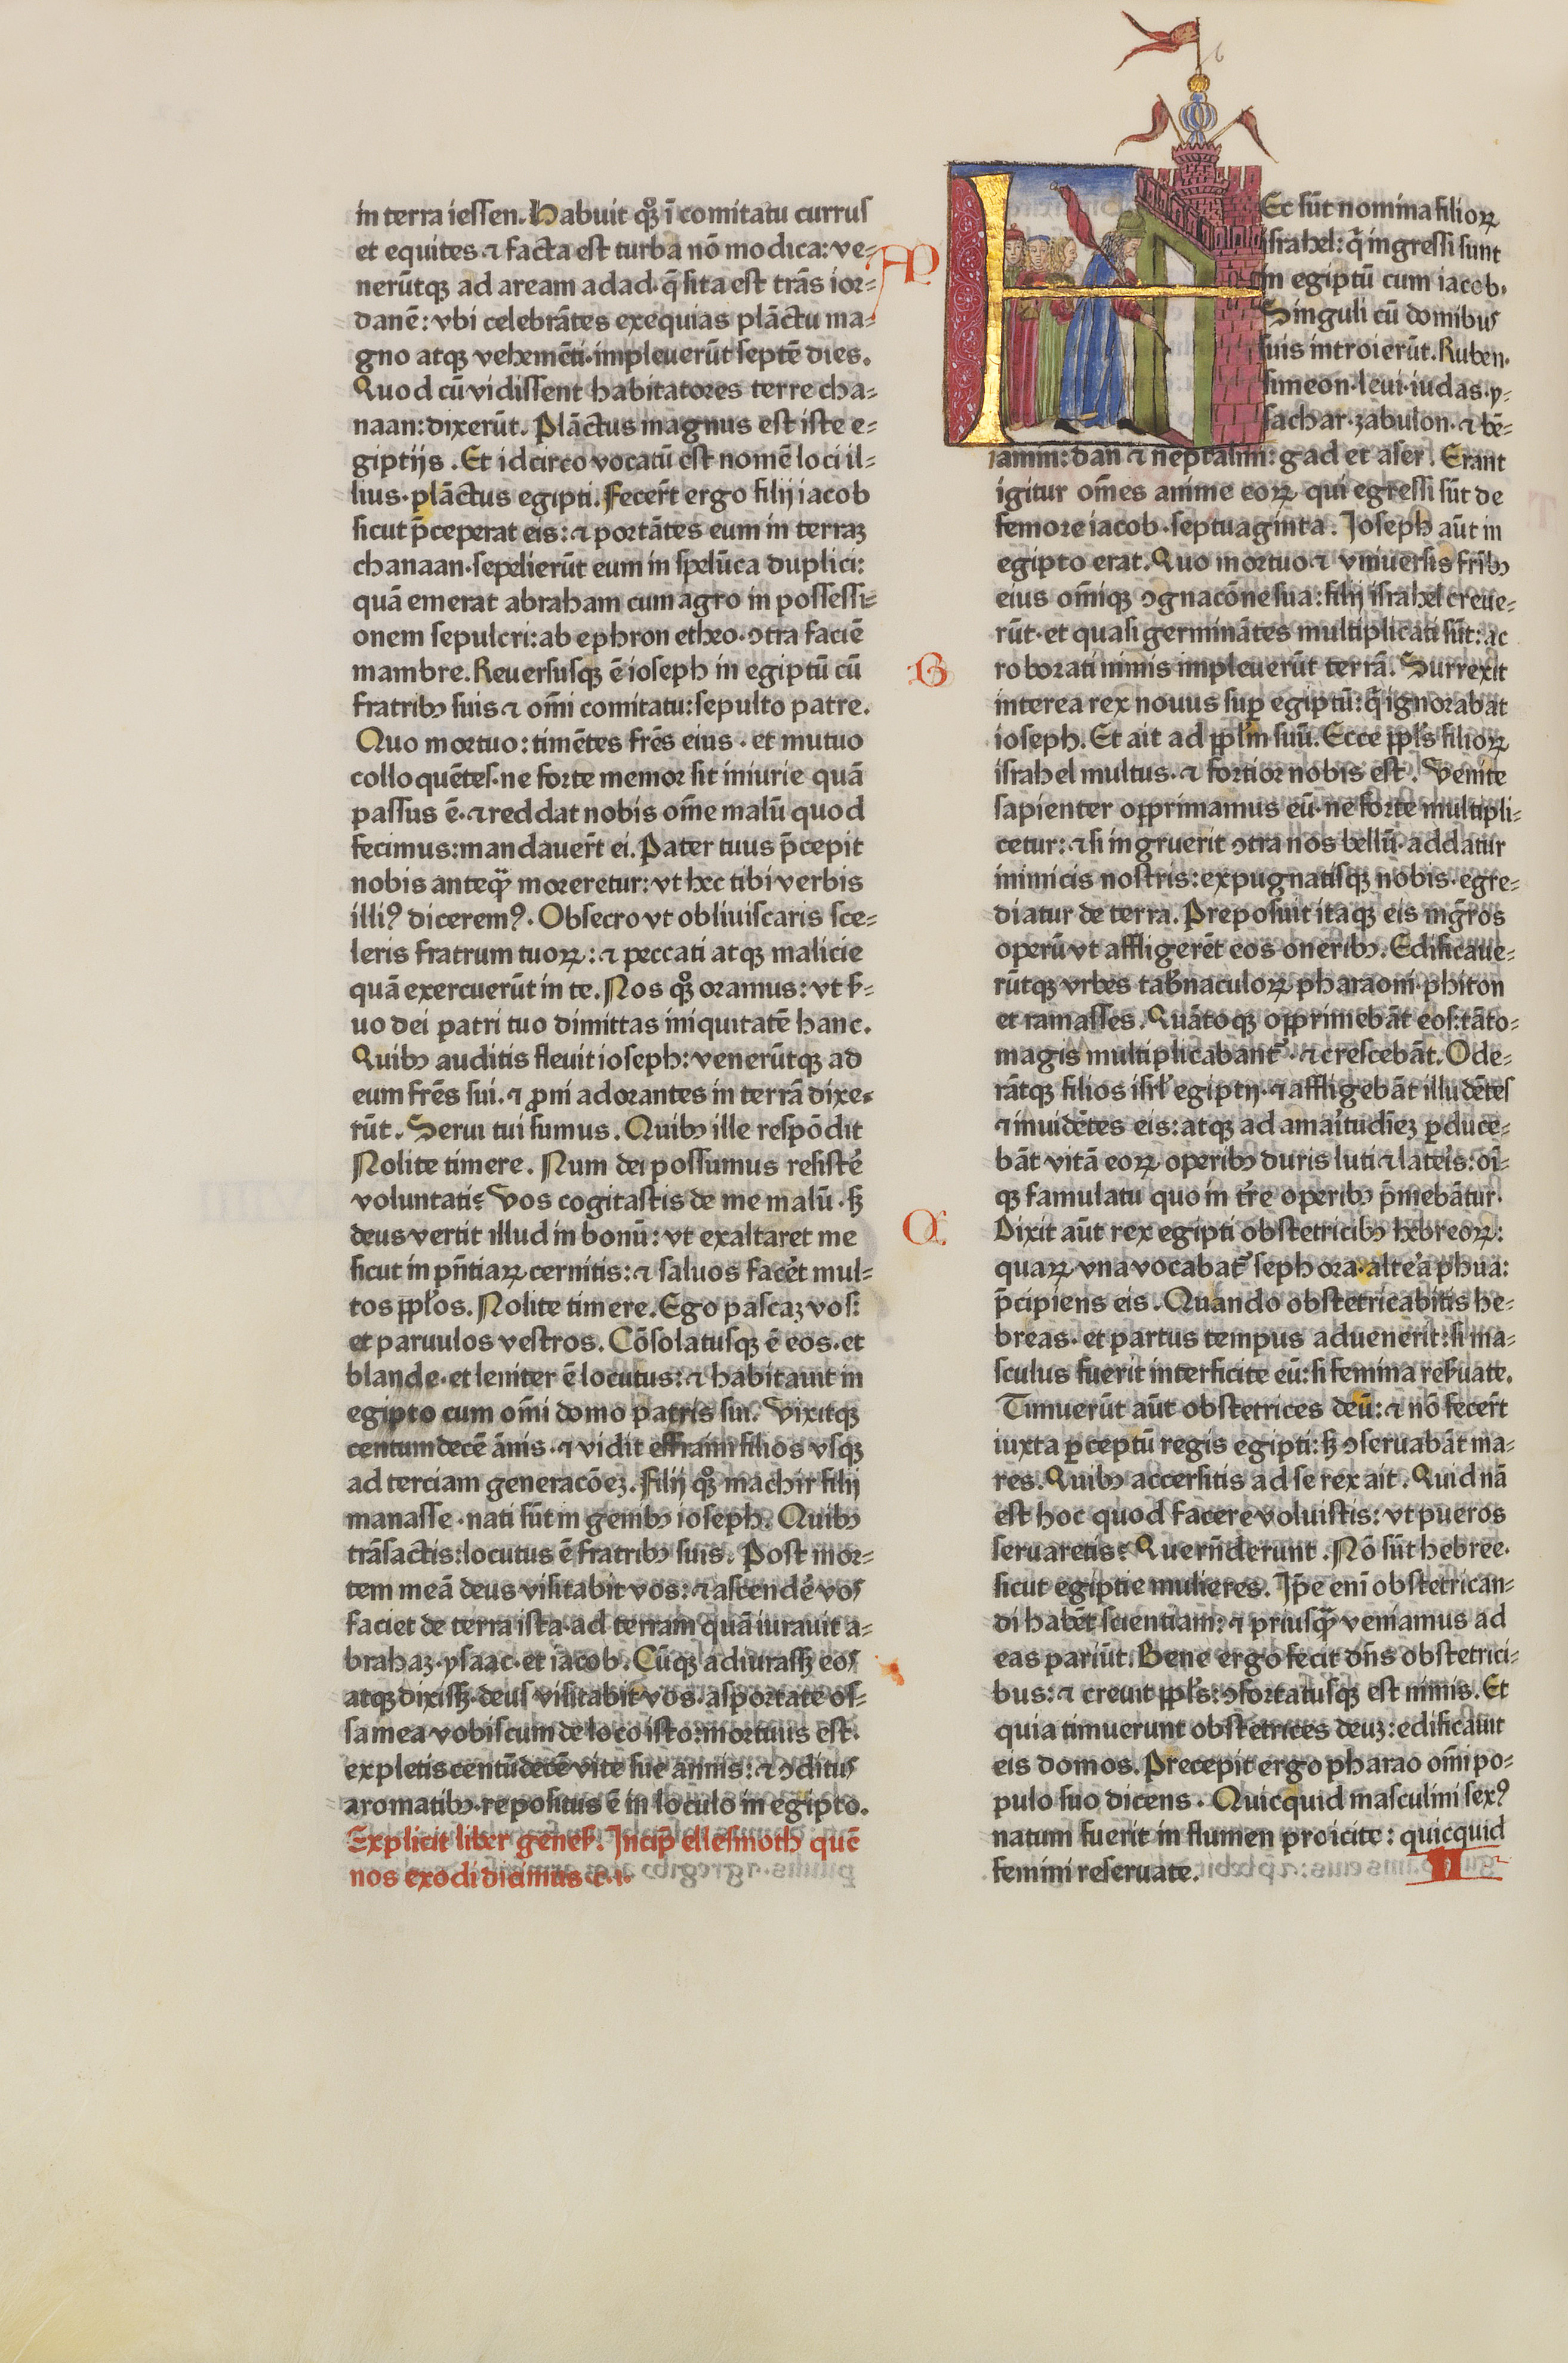 in terra iessen. Habuit qꝫ ĩ comitatu currus
et equites ⁊ facta est turba nõ modica: ve⸗
nerũtqꝫ ad aream adad· q̃ sita est trãs ior⸗
danẽ: vbi celebrãtes exequias plãctu ma⸗
gno atqꝫ vehemẽti· impleuerũt septẽ dies.
Quod cũ vidissent habitatores terre cha⸗
naan: dixerũt. Plãctus magnus est iste e⸗
giptijs. Et idcirco vocatũ est nomẽ loci il⸗
lius· plãctus egipti. Fecer̃t ergo filij iacob
sicut p̃ceperat eis: ⁊ portãtes eum in terraꝫ
chanaan· sepelierũt eum in spelũca duplici:
quã emerat abraham cum agro in possessi⸗
onem sepulcri: ab ephron etheo· ꝯtra faciẽ
mambre. Reuersusqꝫ ẽ ioseph in egiptũ cũ
fratribꝫ suis ⁊ om̃i comitatu: sepulto patre.
Quo mortuo: timẽtes frẽs eius· et mutuo
colloquẽtes· ne forte memor sit iniurie quã
passus ẽ· ⁊ reddat nobis om̃e malũ quod
fecimus: mandauer̃t ei. Pater tuus p̃cepit
nobis anteqᷓ moreretur: vt hec tibi verbis
illiꝰ diceremꝰ. Obsecro vt obliuiscaris sce⸗
leris fratrum tuoꝝ: ⁊ peccati atqꝫ malicie
quã exercuerũt in te. Nos qꝫ oramus: vt ẜ⸗
uo dei patri tuo dimittas iniquitatẽ hanc.
Quibꝫ auditis fleuit ioseph: venerũtqꝫ ad
eum frẽs sui. ⁊ ꝓni adorantes in terrã dixe⸗
rũt. Serui tui sumus. Quibꝫ ille respõdit
Nolite timere. Num dei possumus resistẽ
voluntati? Vos cogitastis de me malũ· sꝫ
deus vertit illud in bonũ: vt exaltaret me
sicut in pñtiaꝝ cernitis: ⁊ saluos facẽt mul⸗
tos pp̃los. Nolite timere. Ego pascaꝫ vos:
et paruulos vestros. Cõsolatusqꝫ ẽ eos· et
blande· et leniter ẽ locutus: ⁊ habitauit in
egipto cum om̃i domo patris sui. Vixitqꝫ
centum decẽ ãnis· ⁊ vidit effraim filios vsqꝫ
ad terciam generacõeꝫ. Filij qꝫ machir filij
manasse· nati sũt in genibꝫ ioseph. Quibꝫ
trãsactis: locutus ẽ fratribꝫ suis. Post mor⸗
tem meã deus visitabit vos: ⁊ ascendẽ vos
faciet de terra ista· ad terram quã iurauit a⸗
brahaꝫ· ysaac· et iacob. Cũqꝫ adiurassꝫ eos
atqꝫ dixissꝫ· deus visitabit vos· asportate os⸗
sa mea vobiscum de loco isto: mortuus est.
expletis centũ decẽ vite sue annis: ⁊ ꝯditus
aromatibꝫ· repositus ẽ in loculo in egipto.
Explicit liber geneẜ. Incip̃ ellesmoth quẽ
nos exodi dicimus c. i.
A
B
C
HEc sũt nomina filioꝝ
israhel: q̃ ingressi sunt
in egiptũ cum iacob.
Singuli cũ domibus
suis introierũt. Ruben·
simeon· leui· iudas· y⸗
sachar· zabulon· ⁊ bẽ⸗
iamin: dan ⁊ neptalim: gad et aser. Erant
igitur om̃es anime eoꝝ qui egressi sũt de
femore iacob· septuaginta. Ioseph aũt in
egipto erat. Quo mortuo ⁊ vniuersis fr̃ibꝫ
eius om̃iqꝫ ꝯgnacõne sua: filij israhel creue⸗
rũt· et quasi germinãtes multiplicati sũt: ac
roborati nimis impleuerũt terrã. Surrexit
interea rex nouus suꝑ egiptũ: q̃ ignorabat
ioseph. Et ait ad pp̃lm suũ. Ecce pp̃ls filioꝝ
israhel multus· ⁊ fortior nobis est. Venite
sapienter opprimamus eũ· ne forte multipli⸗
cetur: ⁊ si ingruerit ꝯtra nos bellũ· addatur
inimicis nostris: expugnatisqꝫ nobis· egre⸗
diatur de terra. Preposuit itaqꝫ eis mg̃ros
operũ vt affligerẽt eos oneribꝫ. Edificaue⸗
rũtqꝫ vrbes tab̃naculoꝝ pharaoni· phiton
et ramasses. Quãtoqꝫ opprimebãt eos: tãto⸗
magis multiplicabantᷣ· ⁊ crescebãt. Ode⸗
rãtqꝫ filios isrł egiptij· ⁊ affligebãt illudẽtes
⁊ inuidẽtes eis: atqꝫ ad amaritudieꝫ ꝑduce⸗
bãt vitã eoꝝ operibꝫ duris luti ⁊ lateris: oĩ⸗
qꝫ famulatu quo in tr̃e operibꝫ p̃mebãtur.
Dixit aũt rex egipti obstetricibꝫ hebreoꝝ:
quaꝝ vna vocabatᷣ sephora· altẽa phua:
p̃cipiens eis. Quando obstetricabitis he⸗
breas· et partus tempus aduenerit: si ma⸗
sculus fuerit interficite eũ: si femina reẜuate.
Timuerũt aũt obstetrices deũ: ⁊ nõ fecer̃t
iuxta ꝑceptũ regis egipti: sꝫ ꝯseruabãt ma⸗
res. Quibꝫ accersitis ad se rex ait. Quid nã
est hoc quod facere voluistis: vt pueros
seruaretis? Que rñderunt. Nõ sũt hebree·
sicut egiptie mulieres. Ip̃e eni obstetrican⸗
di habẽt scientiam: ⁊ priusqᷓ veniamus ad
eas pariũt. Bene ergo fecit dñs obstetrici⸗
bus: ⁊ creuit pp̃ls: ꝯfortatusqꝫ est nimis. Et
quia timuerunt obstetrices deuꝫ: edificauit
eis domos. Precepit ergo pharao om̃i po⸗
pulo suo dicens. Quicquid masculini sexꝰ
natum fuerit in flumen proicite: quicquid
femini reseruate. II